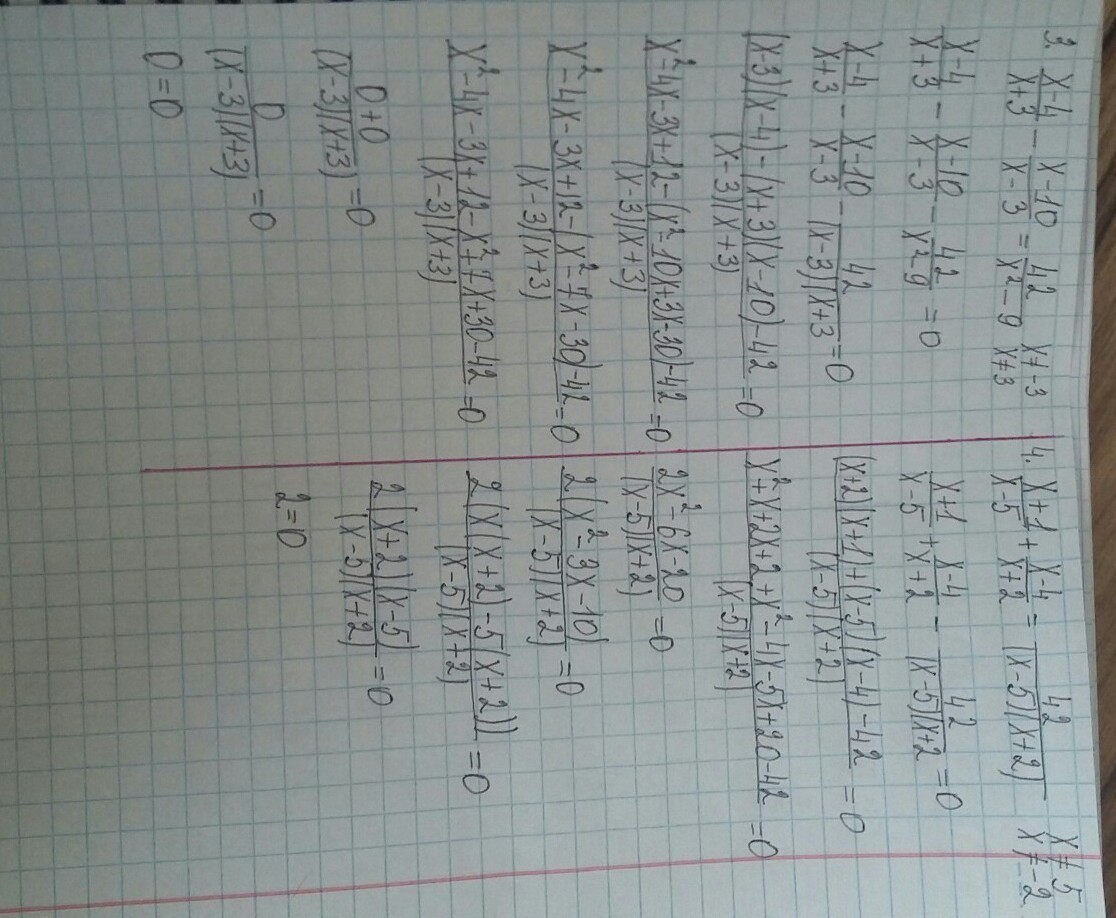 3. (x-4)/(x+3) - (x-10)/(x-3) = 42/(x²-9) x≠-3 x≠3
(x-4)/(x+3) - (x-10)/(x-3) - 42/(x²-9) = 0
(x-4)/(x+3) - (x-10)/(x-3) - 42/((x-3)(x+3) = 0
((x-3)(x-4)-(x+3)(x-10)-42)/((x-3)(x+3)) = 0
(x²-4x-3x+12-(x²-10x+3x-30)-42)/((x-3)(x+3)) = 0
(x²-4x-3x+12-(x²-7x-30)-42)/((x-3)(x+3)) = 0
(x²-4x-3x+12-x²+7x+30-42)/((x-3)(x+3)) = 0
(0+0)/((x-3)(x+3)) = 0
0/((x-3)(x+3)) = 0
0=0
4. (x+1)/(x-5) + (x-4)/(x+2) = 42/((x-5)(x+2)) x≠5 x≠-2
(x+1)/(x-5) + (x-4)/(x+2) - 42/((x-5)(x+2) = 0
((x+2)(x+1)+(x-5)(x-4)-42)/((x-5)(x+2)) = 0
(x²+x+2x+2+x²-4x-5x+20-42)/((x-5)(x+2)) = 0
(2x²-6x-20)/((x-5)(x+2)) = 0
2(x²-3x-10)/((x-5)(x+2)) = 0
2(x(x+2)-5(x+2))/((x-5)(x+2)) = 0
2(x+2)(x-5)/((x-5)(x+2)) = 0
2=0